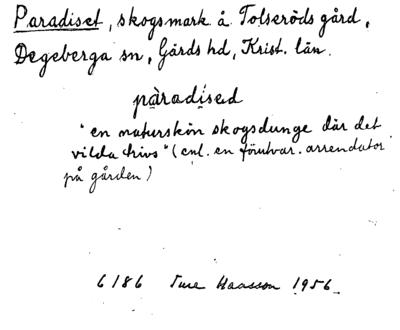 Paradiset, skogsmark å Tolseröds gård,
Degeberga sn, Gärds hd, Krist. län.
pàradísed
"en naturskön skogsdunge där det
vilda trivs" (enl. en förutvar. arrendator
på gården)
6186 Ture Haasson 1956